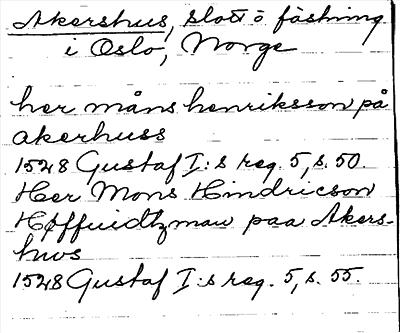 Akershus, slott o fästning
i Oslo, Norge
her måns henriksson på
akerhuss
1528 Gustaf I:s reg. 5, s. 50.
Her Mons Hindricson
Høffuidtzman paa Akers-
hws
1528 Gustaf I:s reg. 5, s. 55.